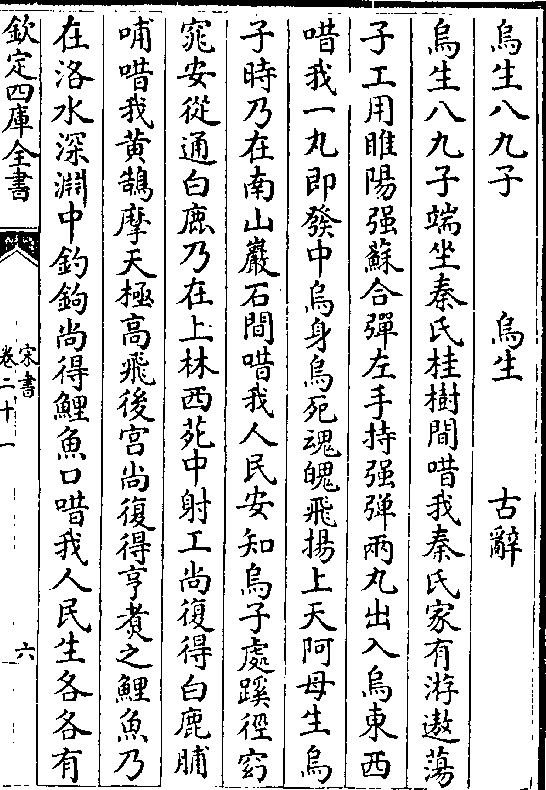 烏生八九子　烏生　古辭
烏生八九子端坐秦氏桂樹間唶我秦氏家有游遨蕩
子工用睢陽强蘇合彈左手持强彈兩丸出入烏東西
唶我一丸即發中烏身烏死魂魄飛揚上天阿母生烏
子時乃在南山巖石間唶我人民安知烏子處蹊徑窈
窕安從通白鹿乃在上林西苑中射工尚復得白鹿脯
哺唶我黄鵠摩天極高飛後宫尚復得亨煮之鯉魚乃
在洛水深淵中釣鉤尚得鯉魚口唶我人民生各各有
欽定四庫全書
宋書
卷二十一
六